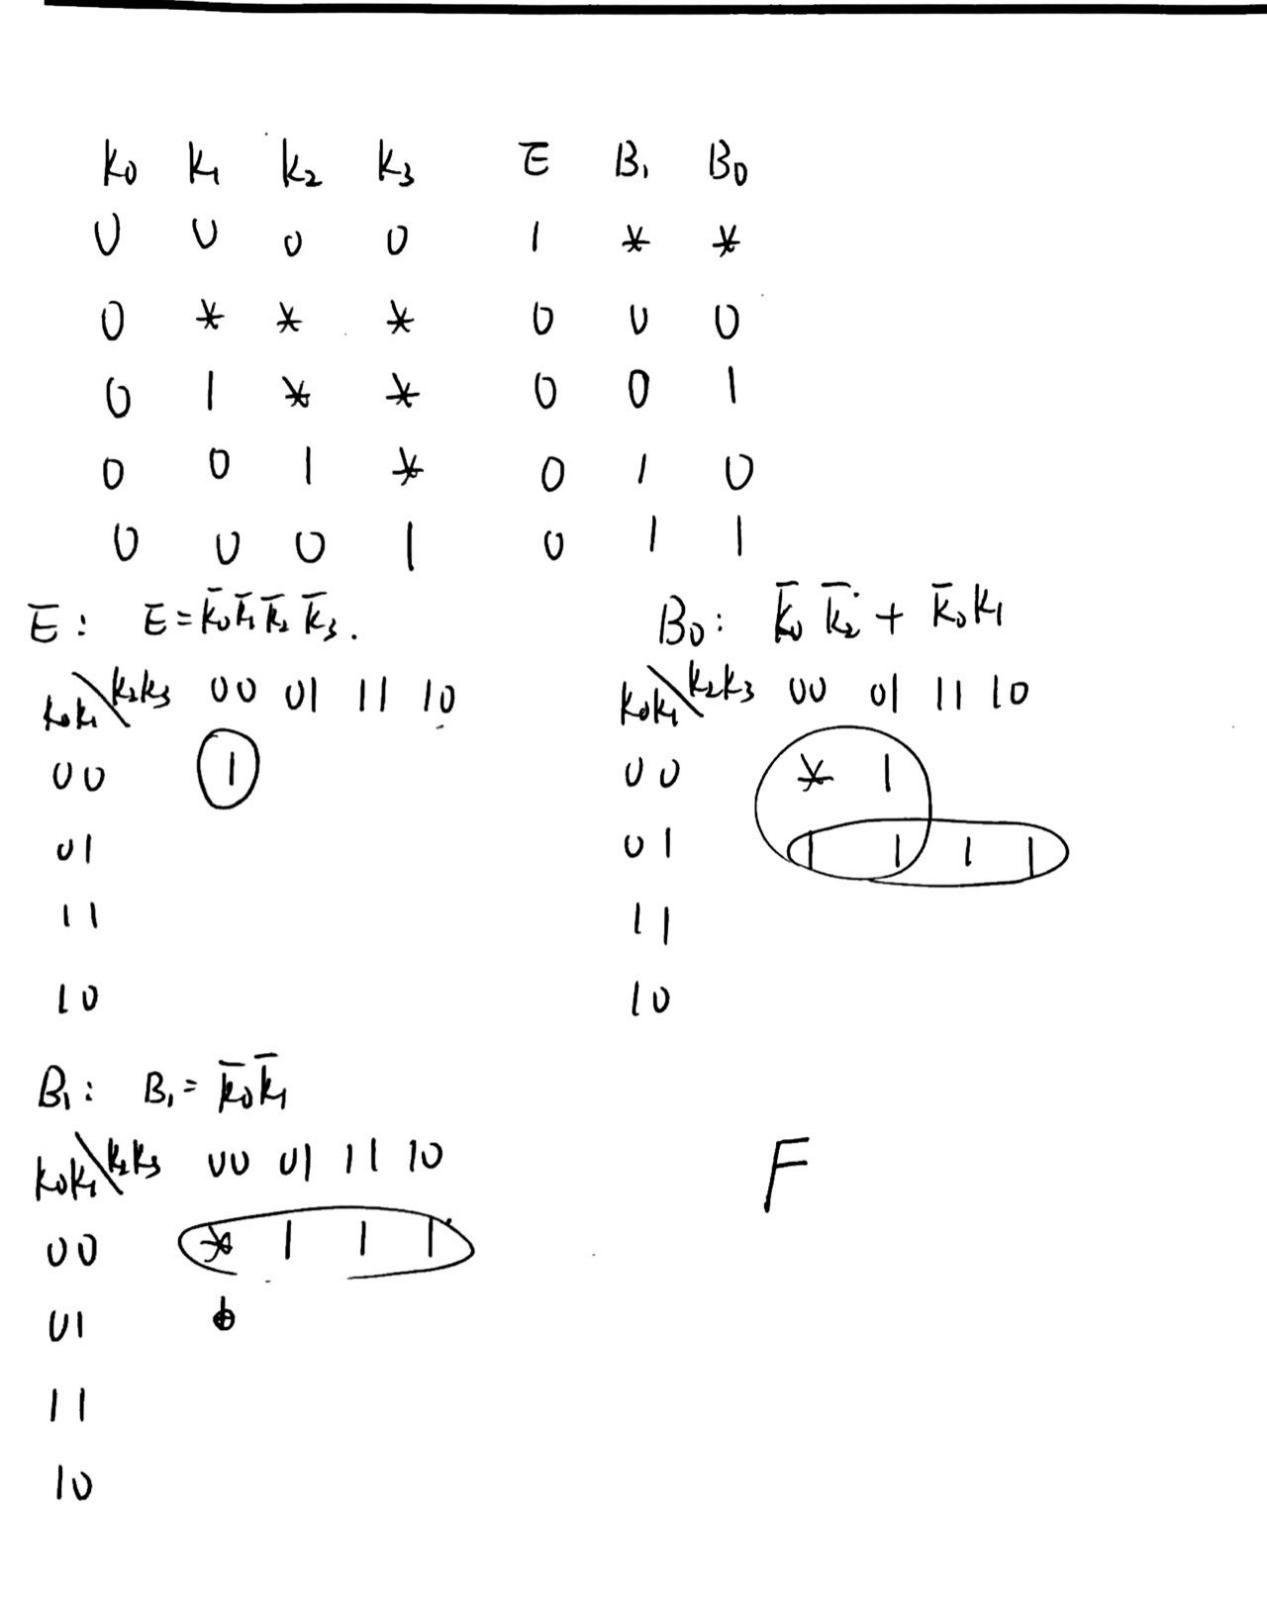 k₀ k₁ k₂ k₃ E B₁ B₀
0 0 0 0 1 * *
0 * * * 0 0 0
0 1 * * 0 0 1
0 0 1 * 0 1 0
0 0 0 1 0 1 1
E: E = k̅₀k̅₁k̅₂k̅₃.
k₀k₁\k₂k₃ 00 01 11 10
00 1
01
11
10
B₀: k̅₀ k̅₂ + k̅₀k₁
k₀k₁\k₂k₃ 00 01 11 10
00 * 1
01 1 1 1 1
11
10
B₁: B₁ = k̅₀k̅₁
k₀k₁\k₂k₃ 00 01 11 10
00 * 1 1 1
01
11
10
F